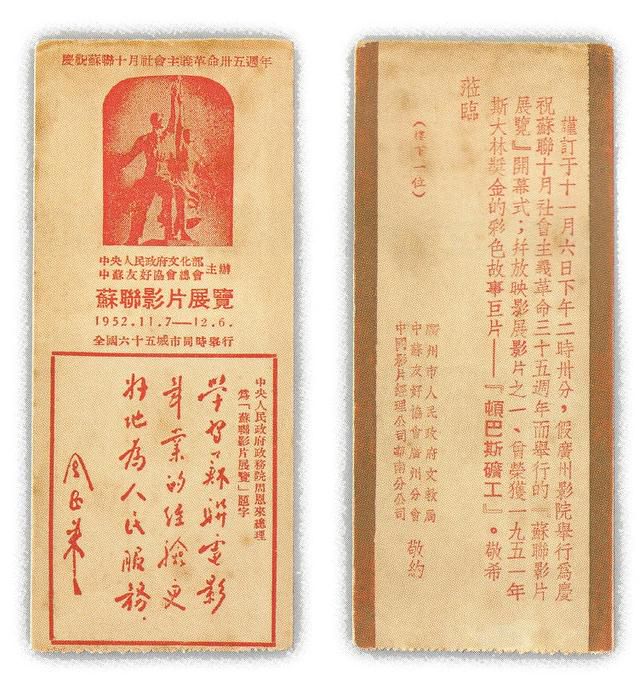 慶祝蘇聯十月社會主義革命卅五週年
中央人民政府文化部
中蘇友好協會總會
主辦
蘇聯影片展覽
1952.11.7—12.6.
全國六十五城市同時舉行
中央人民政府政務院周恩來總理
爲「蘇聯影片展覽」題字
學習蘇聯電影
事業的經驗更
好地為人民服務.
周恩來
謹訂于十一月六日下午二時卅分，假廣州影院舉行爲慶
祝蘇聯十月社會主義革命三十五週年而舉行的『蘇聯影片
展覽』開幕式；幷放映影展影片之一、曾榮獲一九五一年
斯大林獎金的彩色故事巨片——『頓巴斯礦工』。敬希
蒞臨
（樓下一位）
廣州市人民政府文教局
中蘇友好協會廣州分會
中國影片經理公司華南分公司
敬約